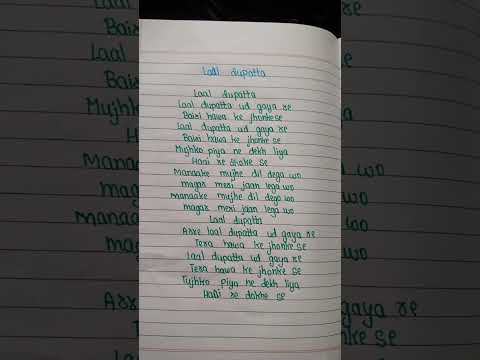 Laal dupatta
Laal dupatta
Laal dupatta ud gaya re
Bairi hawa ke jhonke se
Laal dupatta ud gaya re
Bairi hawa ke jhonke se
Mujhko piya ne dekh liya
Haai re dhoke se
Manaake mujhe dil dega wo
magar meri jaan lega wo
Manaake mujhe dil dega wo
magar meri jaan lega wo
Laal dupatta
Arre laal dupatta ud gaya re
Tera hawa ke jhonke se
Laal dupatta ud gaya re
Tera hawa ke jhonke se
Tujhko piya ne dekh liya
Haai re dokhe se